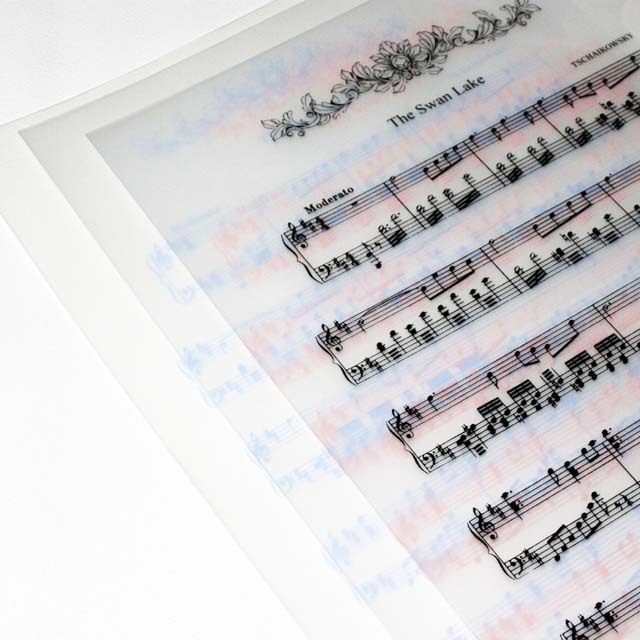 The Swan Lake
TSCHAIKOWSKY
Moderato